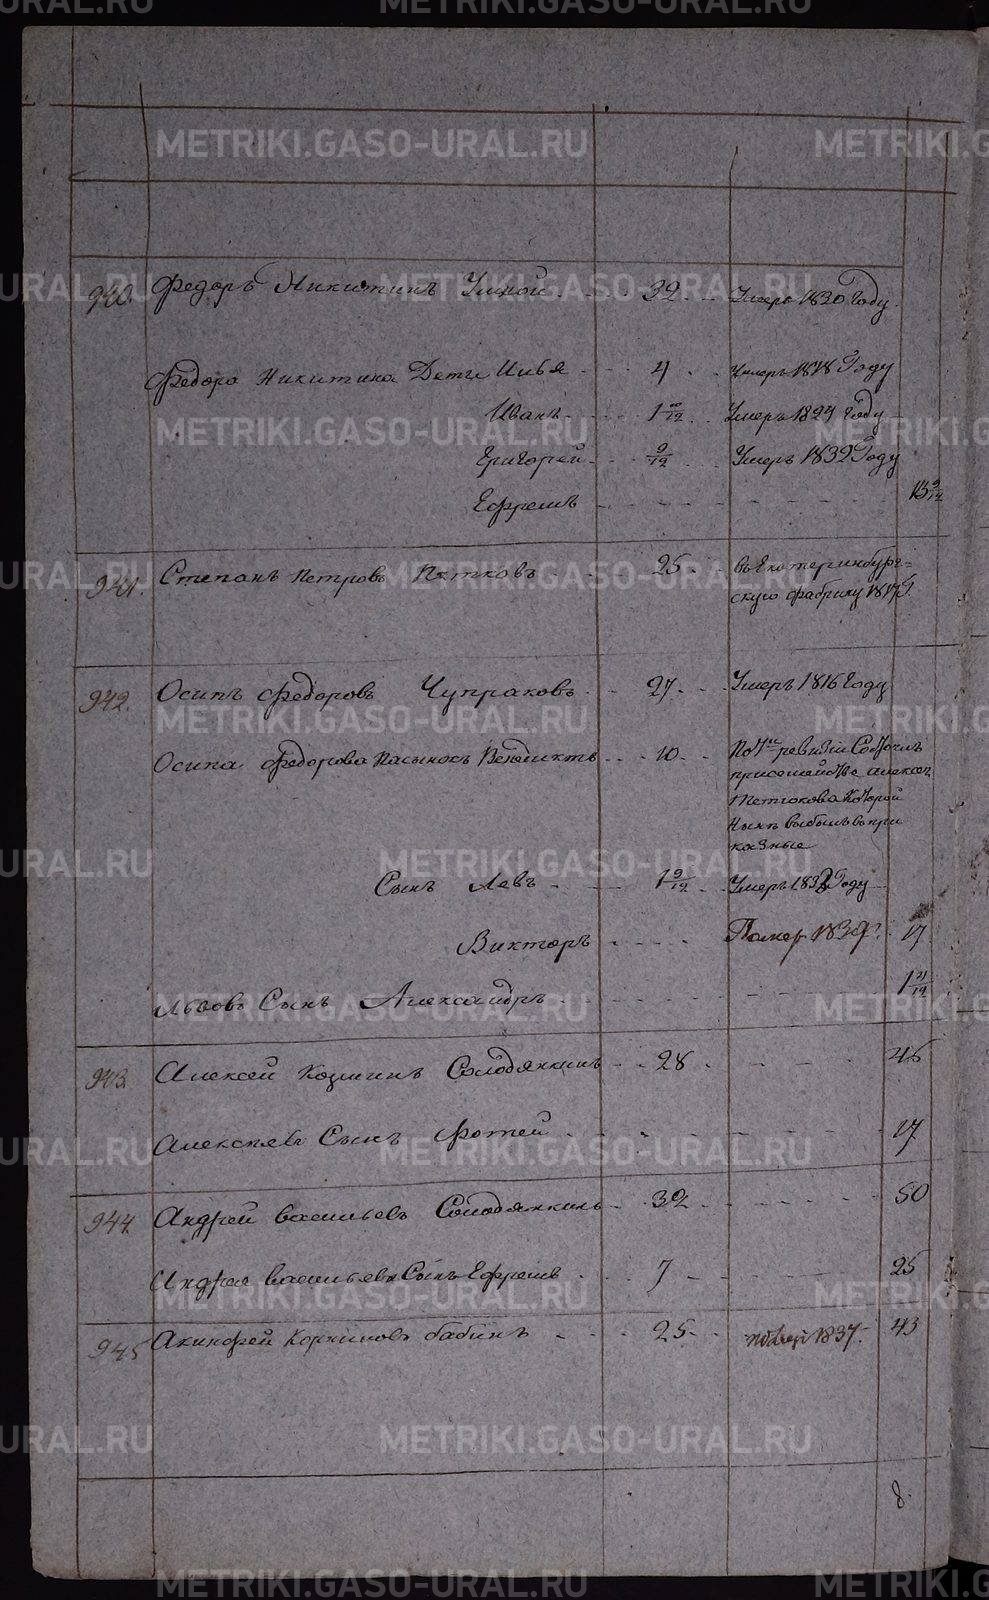 940. Федоръ Никитинъ Умной 32 Умеръ 1830 Году
Федора Никитина Дети Илья 4 Умеръ 1818 Году
Иванъ 1 10/12 Умеръ 1824 Году
Григорей 9/12 Умеръ 1832 Году
Ефремъ 13 9/12
941. Степанъ Петровъ Пятковъ 25 въ Екатеринбург=
скую фабрику 1817 Г.
942. Осипъ Федоровъ Чупраковъ 27 Умеръ 1816 Году
Осипа Федорова Пасынокъ Венедиктъ 10 По 7й ревизии Состоялъ
при семействе Алексея
Который
Ныне выбылъ въ при
казные
Сынъ Левъ 1 9/12 Умеръ 1832 Году
Викторъ Помер 1839. 17
Львовъ Сынъ Александръ 1 4/12
943. Алексей Козминъ Солодянкинъ 28 45
Алексеевъ Сынъ Фотей 17
944. Андрей Васильевъ Солодянкинъ 32 50
Андрея Васильева Сынъ Ефремъ 7 25
945 Акинфей Корниловъ Бабинъ 25 1837. 43
8.
METRIKI.GASO-URAL.RU